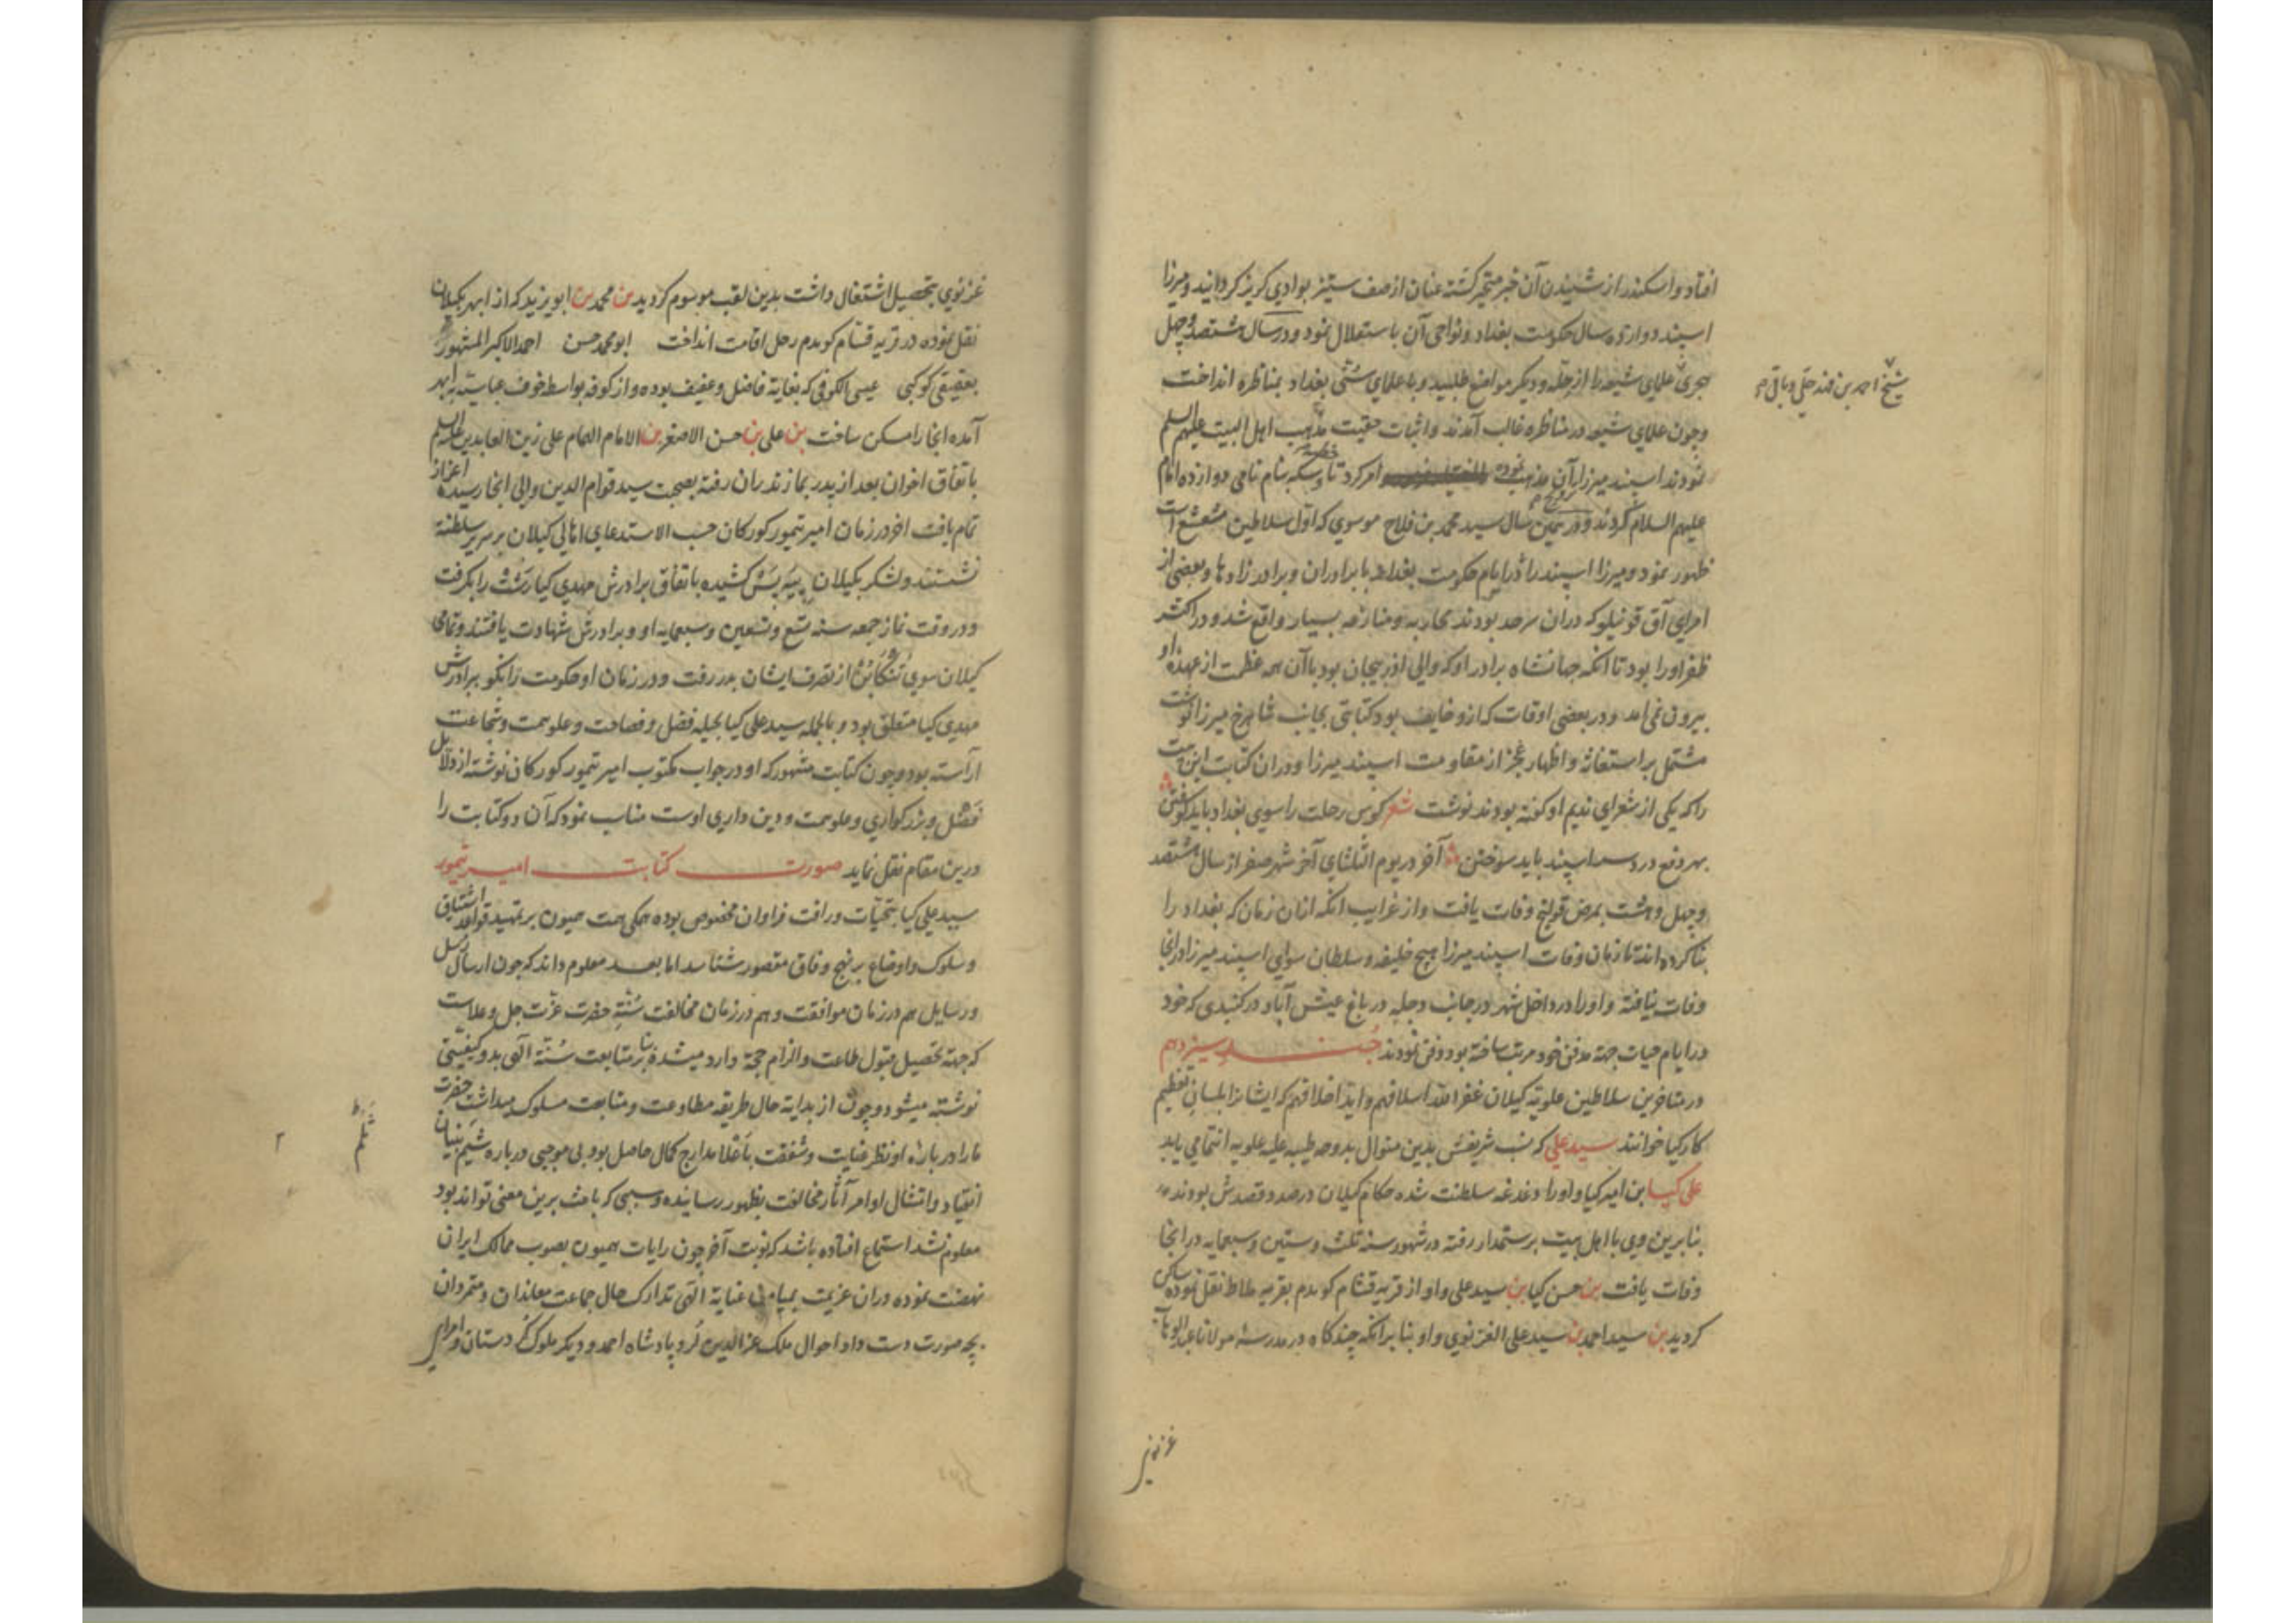 افتاد و اسکندر از شنیدن آن خبر متحیر کشته عنان از صف ستیز بوادی کریز کردانید و میرزا
اسپند دوازده سال حکومت بغداد و نواحی آن باستقلال نمود و در سال هشتصد و چهل
هجری علمای شیعه را از حله و دیکر مواضع طلبید و با علمای سنی بغداد بمناظره انداخت
شیخ احمد بن فهد حلی و باقی
و چون علمای شیعه در مناظره غالب آمدند و اثبات حقیت مذهب اهل البیت علیهم السلم
نمودند اسپند میرزا آن مذهب نموده امر کرد تا خطبه و سکه بنام نامی دوازده امام
علیهم السلام کردند و در همین سال سید محمد بن فلاح موسوی که اول سلاطین مشعشع است
ظهور نمود و میرزا اسپند را در ایام حکومت بغداد با برادران و برادر زادها و بعضی از
امرای آق قوینلو که دران سرحد بودند محاربه و منازعه بسیار واقع شد و در اکثر
ظفر او را بود تا آنکه جهانشاه برادر او که والی اذربیجان بود باآن همه عظمت از عهده او
بیرون نمی امد و در بعضی اوقات که ازو خایف بود کتابتی بجانب شاهرخ میرزا نوشت
مشتمل بر استغاثه و اظهار عجز از مقاومت اسپند میرزا و دران کتابت این بیت
را که یکی از شعرای ندیم او کفته بودند نوشت شعر کوس رحلت را سوی بغداد باید کوفتن
بهر دفع درد سر اسپند باید سوختن آخر در یوم الثلثای آخر شهر صفر از سال هشتصد
و چهل و هشت بمرض قولنج وفات یافت و از غرایب انکه ازان زمان که بغداد را
بنا کرده اند تا زمان وفات اسپند میرزا هیچ خلیفه و سلطان سوای اسپند میرزا درانجا
وفات نیافته و او را در داخل شهر در جانب دجله در باغ عیش آباد در کنبدی که خود
در ایام حیات جهة مدفن خود مرتب ساخته بود دفن نمودند جند سیزدهم
در متاخرین سلاطین علویه کیلان غفر الله اسلافهم و اید اخلافهم که ایشانرا بلسان تعظیم
کارکیا خوانند سید علی که نسب شریفش بدین منوال بدوحه طیبه علیه علویه انتما می یابد
علی کیا بن امیر کیا و او را دغدغه سلطنت شده حکام کیلان در صدد قصدش بودند
بنابرین وی با اهل بیت برستمدار رفته در شهور سنه ثلث و ستین و سبعمایه در انجا
وفات یافت بن حسن کیا بن سید علی و او از قریه قشام کوهدم بقریه ملاط نقل نموده ساکن
کردید بن سید احمد بن سید علی الغزنوی و او بنابر انکه چندکاه در مدرسه مولانا عبدالوهاب
غزنوی
غزنوی بتحصیل اشتغال داشت بدین لقب موسوم کردید بن محمد بن ابو یزید که از ابهر بکیلان
نقل نموده در قریه قشام کوهدم رحل اقامت انداخت ابو محمد حسن احمد الاکبر المشهور
بعقیقی کوکبی عیسی الکوفی که بغایة فاضل و عفیف بوده و از کوفه بواسطه خوف عباسیه بابهر
آمده انجا را مسکن ساخت بن علی بن حسن الاصغر بن الامام الهمام علی زین العابدین علیه السلم
باتفاق اخوان بعد از پدر بمازندران رفته بصحبت سید قوام الدین والی انجا رسیده اعزاز
تمام یافت اخر در زمان امیر تیمور کورکان حسب الاستدعای اهالی کیلان بر سریر سلطنة
نشستند و لشکر بکیلان بیه پس کشیده باتفاق برادرش مهدی کیا رشت را بکرفت
و در وقت نماز جمعه سنه تسع و تسعین و سبعمایه او و برادرش شهادت یافتند و تمامی
کیلان سوی تنکابن از تصرف ایشان بدر رفت و در زمان او حکومت رانکو برادرش
مهدی کیا متعلق بود و بالجمله سید علی کیا بحیله فضل و فصاحت و علو همت و شجاعت
آراسته بود و چون کتابت مشهور که او در جواب مکتوب امیر تیمور کورکان نوشته از دلایل
فضل و بزرکواری و علو همت و دین داری اوست مناسب نمود که آن دو کتابت را
درین مقام نقل نماید صورت کتابت امیر تیمور
سید علی کیا بتحیات و رافت فراوان مخصوص بوده همکی همت همیون بر تمهید قواعد اشتیاق
و سلوک و اوضاع بر نهج وفاق مقصور شناسد اما بعد معلوم داند که چون ارسال رسل
و رسایل هم در زمان موافقت و هم در زمان مخالفت سنت حضرت عزت جل و علاست
که جهة تحصیل قبول طاعت و الزام حجة وارد میشد بنا بر متابعت سنة الهی بدو کیفیتی
نوشته میشود و چون از بدایة حال طریقه مطاوعت و متابعت مسلوک میداشت حضرت
مارا در باره او نظر عنایت و شفقت باعلا مدارج کمال حاصل بود بی موجبی در باره شیم بنیان
انقیاد و امتثال اوامر آثار مخالفت بظهور رسانیده و سببی که باعث برین معنی تواند بود
معلوم نشد استماع افتاده باشد که نوبت آخر چون رایات همیون بصوب ممالک ایران
نهضت نموده دران عزیمت بمیامن عنایة الهی تدارک حال جماعت معاندان و متمردان
بچه صورت دست داد احوال ملک عزالدین لرد و پادشاه احمد و دیکر ملوک کردستان و امرای